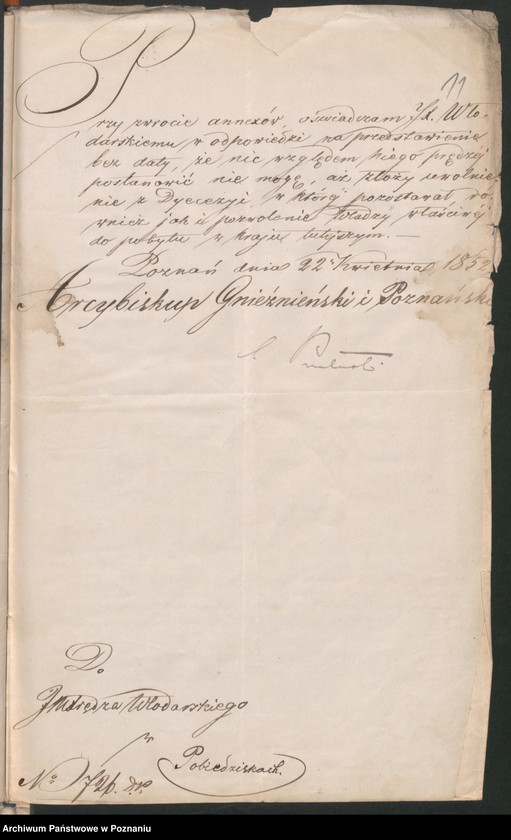 11
Przy zwrocie annexów, oświadczam JX. Wło-
darskiemu w odpowiedzi na przedstawienie
bez daty, że nic względem Niego prędzej
postanowić nie mogę, aż złoży uwolnie-
nie z Dyecezyi, w któréj pozostawał ró-
wnież jak i pozwolenie Władzy właściwéj
do pobytu w kraju tutejszym. —
Poznań dnia 22 Kwietnia 1852
Arcybiskup Gnieźnieński i Poznański
Przyłuski
Do
JMXiędza Włodarskiego
w
Pobiedziskach.
No 726.
Archiwum Państwowe w Poznaniu